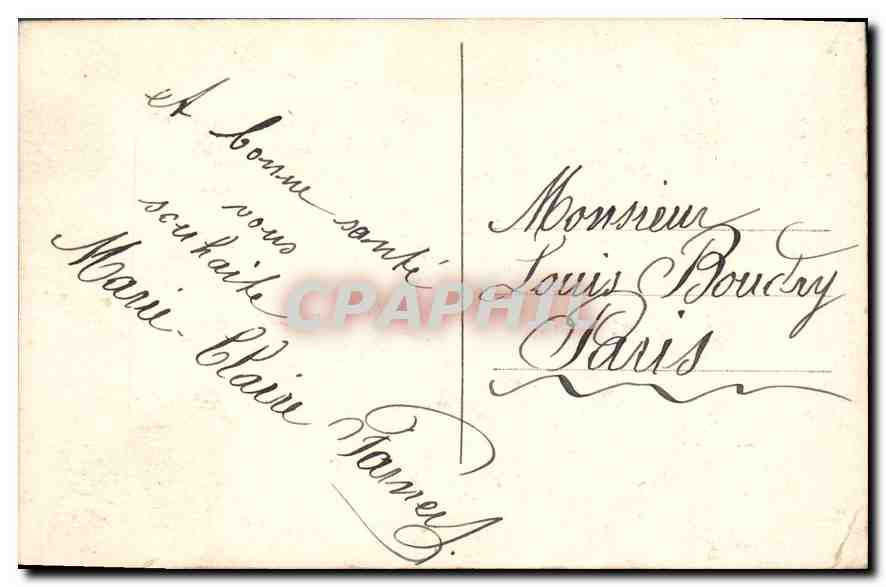 et bonne santé
vous
souhaite
Marie-Claire
Monsieur
Louis Boudry
Paris
CPAPHIL